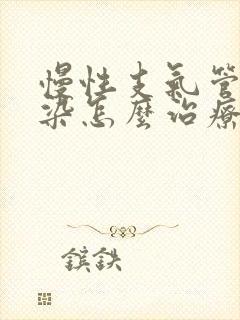 慢性支氣管
染怎麼治療
鎮鉄